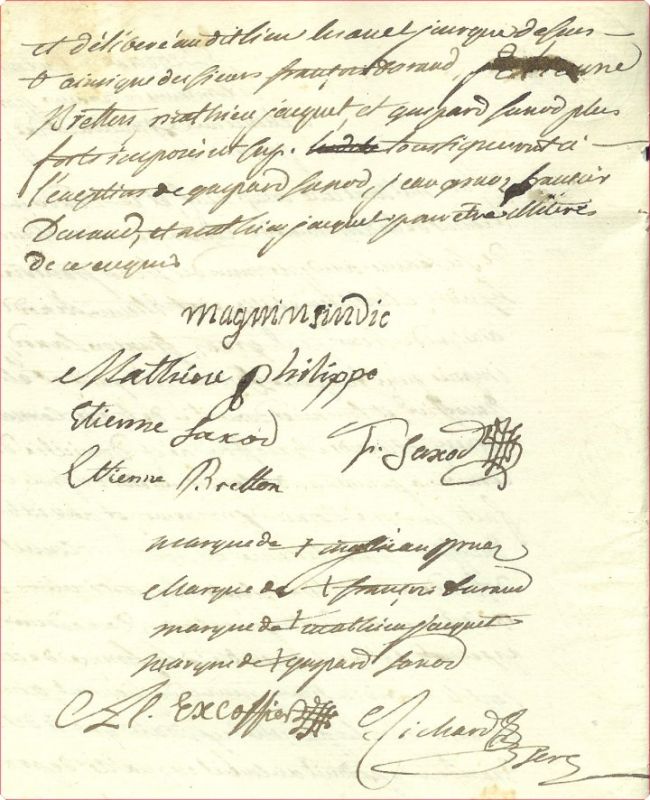 et délibéré audit lieu les an et jour que dessus
ainsique des sieurs françois durand, Etienne
Bretton mathieu jacquet, et guaspard saxod plus
forts imposés et tous signé
l'exception de guaspard saxod, jean françois
Durand, et mathieu jacquet pour être illiterés
de ce enquis
magnin sindic
Mathieu philippe
Etienne Saxod
fr. Saxod
Etienne Bretton
marque de +
Marque de + françois durand
marque de + mathieu jacquet
marque de + guaspard saxod
Excoffier
Richard